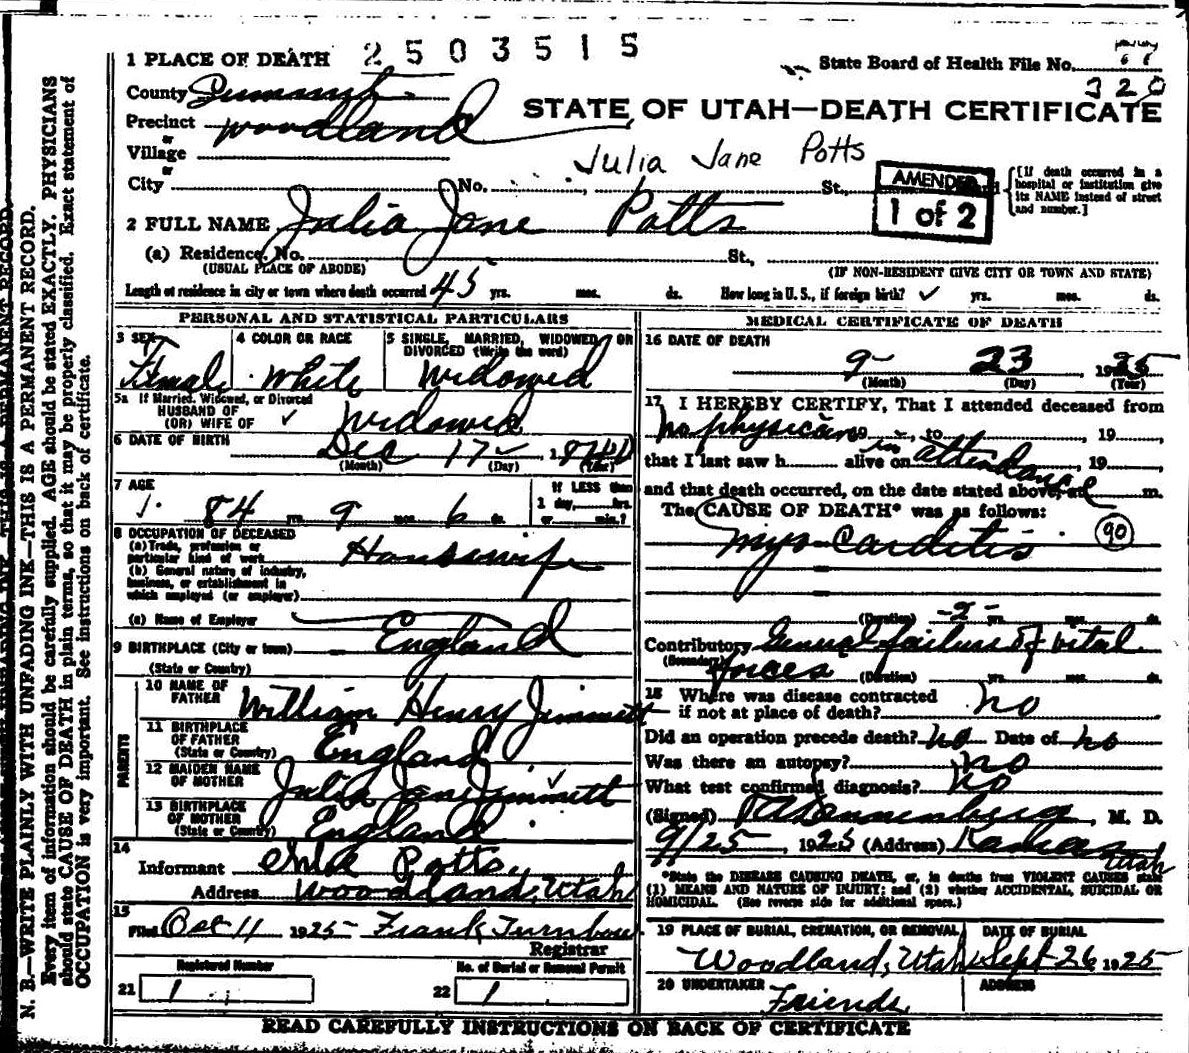 N. B.—WRITE PLAINLY WITH UNFADING INK—THIS IS A PERMANENT RECORD.
Every item of information should be carefully supplied. AGE should be stated EXACTLY. PHYSICIANS
should state CAUSE OF DEATH in plain terms, so that it may be properly classified. Exact statement of
OCCUPATION is very important. See instructions on back of certificate.
1 PLACE OF DEATH 2503515
State Board of Health File No. 
320
County Summit
STATE OF UTAH—DEATH CERTIFICATE
Precinct Woodland
or
Village
Julia Jane Potts
or
City No. St.,
AMENDED
1 of 2
[If death occurred in a
hospital or institution give
its NAME instead of street
and number.]
2 FULL NAME Julia Jane Potts
(a) Residence, No. St.,
(USUAL PLACE OF ABODE) (IF NON-RESIDENT GIVE CITY OR TOWN AND STATE)
Length of residence in city or town where death occurred 45 yrs. mos. ds. How long in U. S., if foreign birth? ✓ yrs. mos. ds.
PERSONAL AND STATISTICAL PARTICULARS
3 SEX 4 COLOR OR RACE 5 SINGLE, MARRIED, WIDOWED, OR
DIVORCED (Write the word)
Female White Widowed
5a If Married, Widowed, or Divorced
HUSBAND OF
(OR) WIFE OF ✓ Widowed
6 DATE OF BIRTH Dec 17
(Month) (Day) (Year)
7 AGE IF LESS than
1 day, hrs.
84 yrs. 9 mos. 6 ds. or min.?
8 OCCUPATION OF DECEASED
(a) Trade, profession or
particular kind of work Housewife
(b) General nature of industry,
business, or establishment in
which employed (or employer)
(c) Name of Employer
9 BIRTHPLACE (City or town) England
(State or Country)
PARENTS
10 NAME OF
FATHER William Henry Jimmett
11 BIRTHPLACE
OF FATHER
(State or Country) England
12 MAIDEN NAME
OF MOTHER Julia Jane Jimmett
13 BIRTHPLACE
OF MOTHER
(State or Country) England
14
Informant Potts,
Address Woodland, Utah
15
Filed Oct 11 1925 Frank Turnbow
Registrar
Registered Number No. of Burial or Removal Permit
21 1 22 1
MEDICAL CERTIFICATE OF DEATH
16 DATE OF DEATH
9 23 1925
(Month) (Day) (Year)
17 I HEREBY CERTIFY, That I attended deceased from
no physician 19 in, to , 19
that I last saw h alive on attendance, 19
and that death occurred, on the date stated above, at m.
The CAUSE OF DEATH* was as follows:
Myo-Carditis 90
(Duration) -2- yrs. mos. ds.
Contributory General failure of vital
(Secondary) forces (Duration) yrs. mos. ds.
18 Where was disease contracted
if not at place of death? no
Did an operation precede death? no Date of no
Was there an autopsy? no
What test confirmed diagnosis? no
(Signed) , M. D.
9/25 1925 (Address) Kamas Utah
*State the DISEASE CAUSING DEATH, or, in deaths from VIOLENT CAUSES state
(1) MEANS AND NATURE OF INJURY; and (2) whether ACCIDENTAL, SUICIDAL OR
HOMICIDAL. (See reverse side for additional space.)
19 PLACE OF BURIAL, CREMATION, OR REMOVAL DATE OF BURIAL
Woodland, Utah Sept 26 1925
20 UNDERTAKER ADDRESS
Friends
READ CAREFULLY INSTRUCTIONS ON BACK OF CERTIFICATE